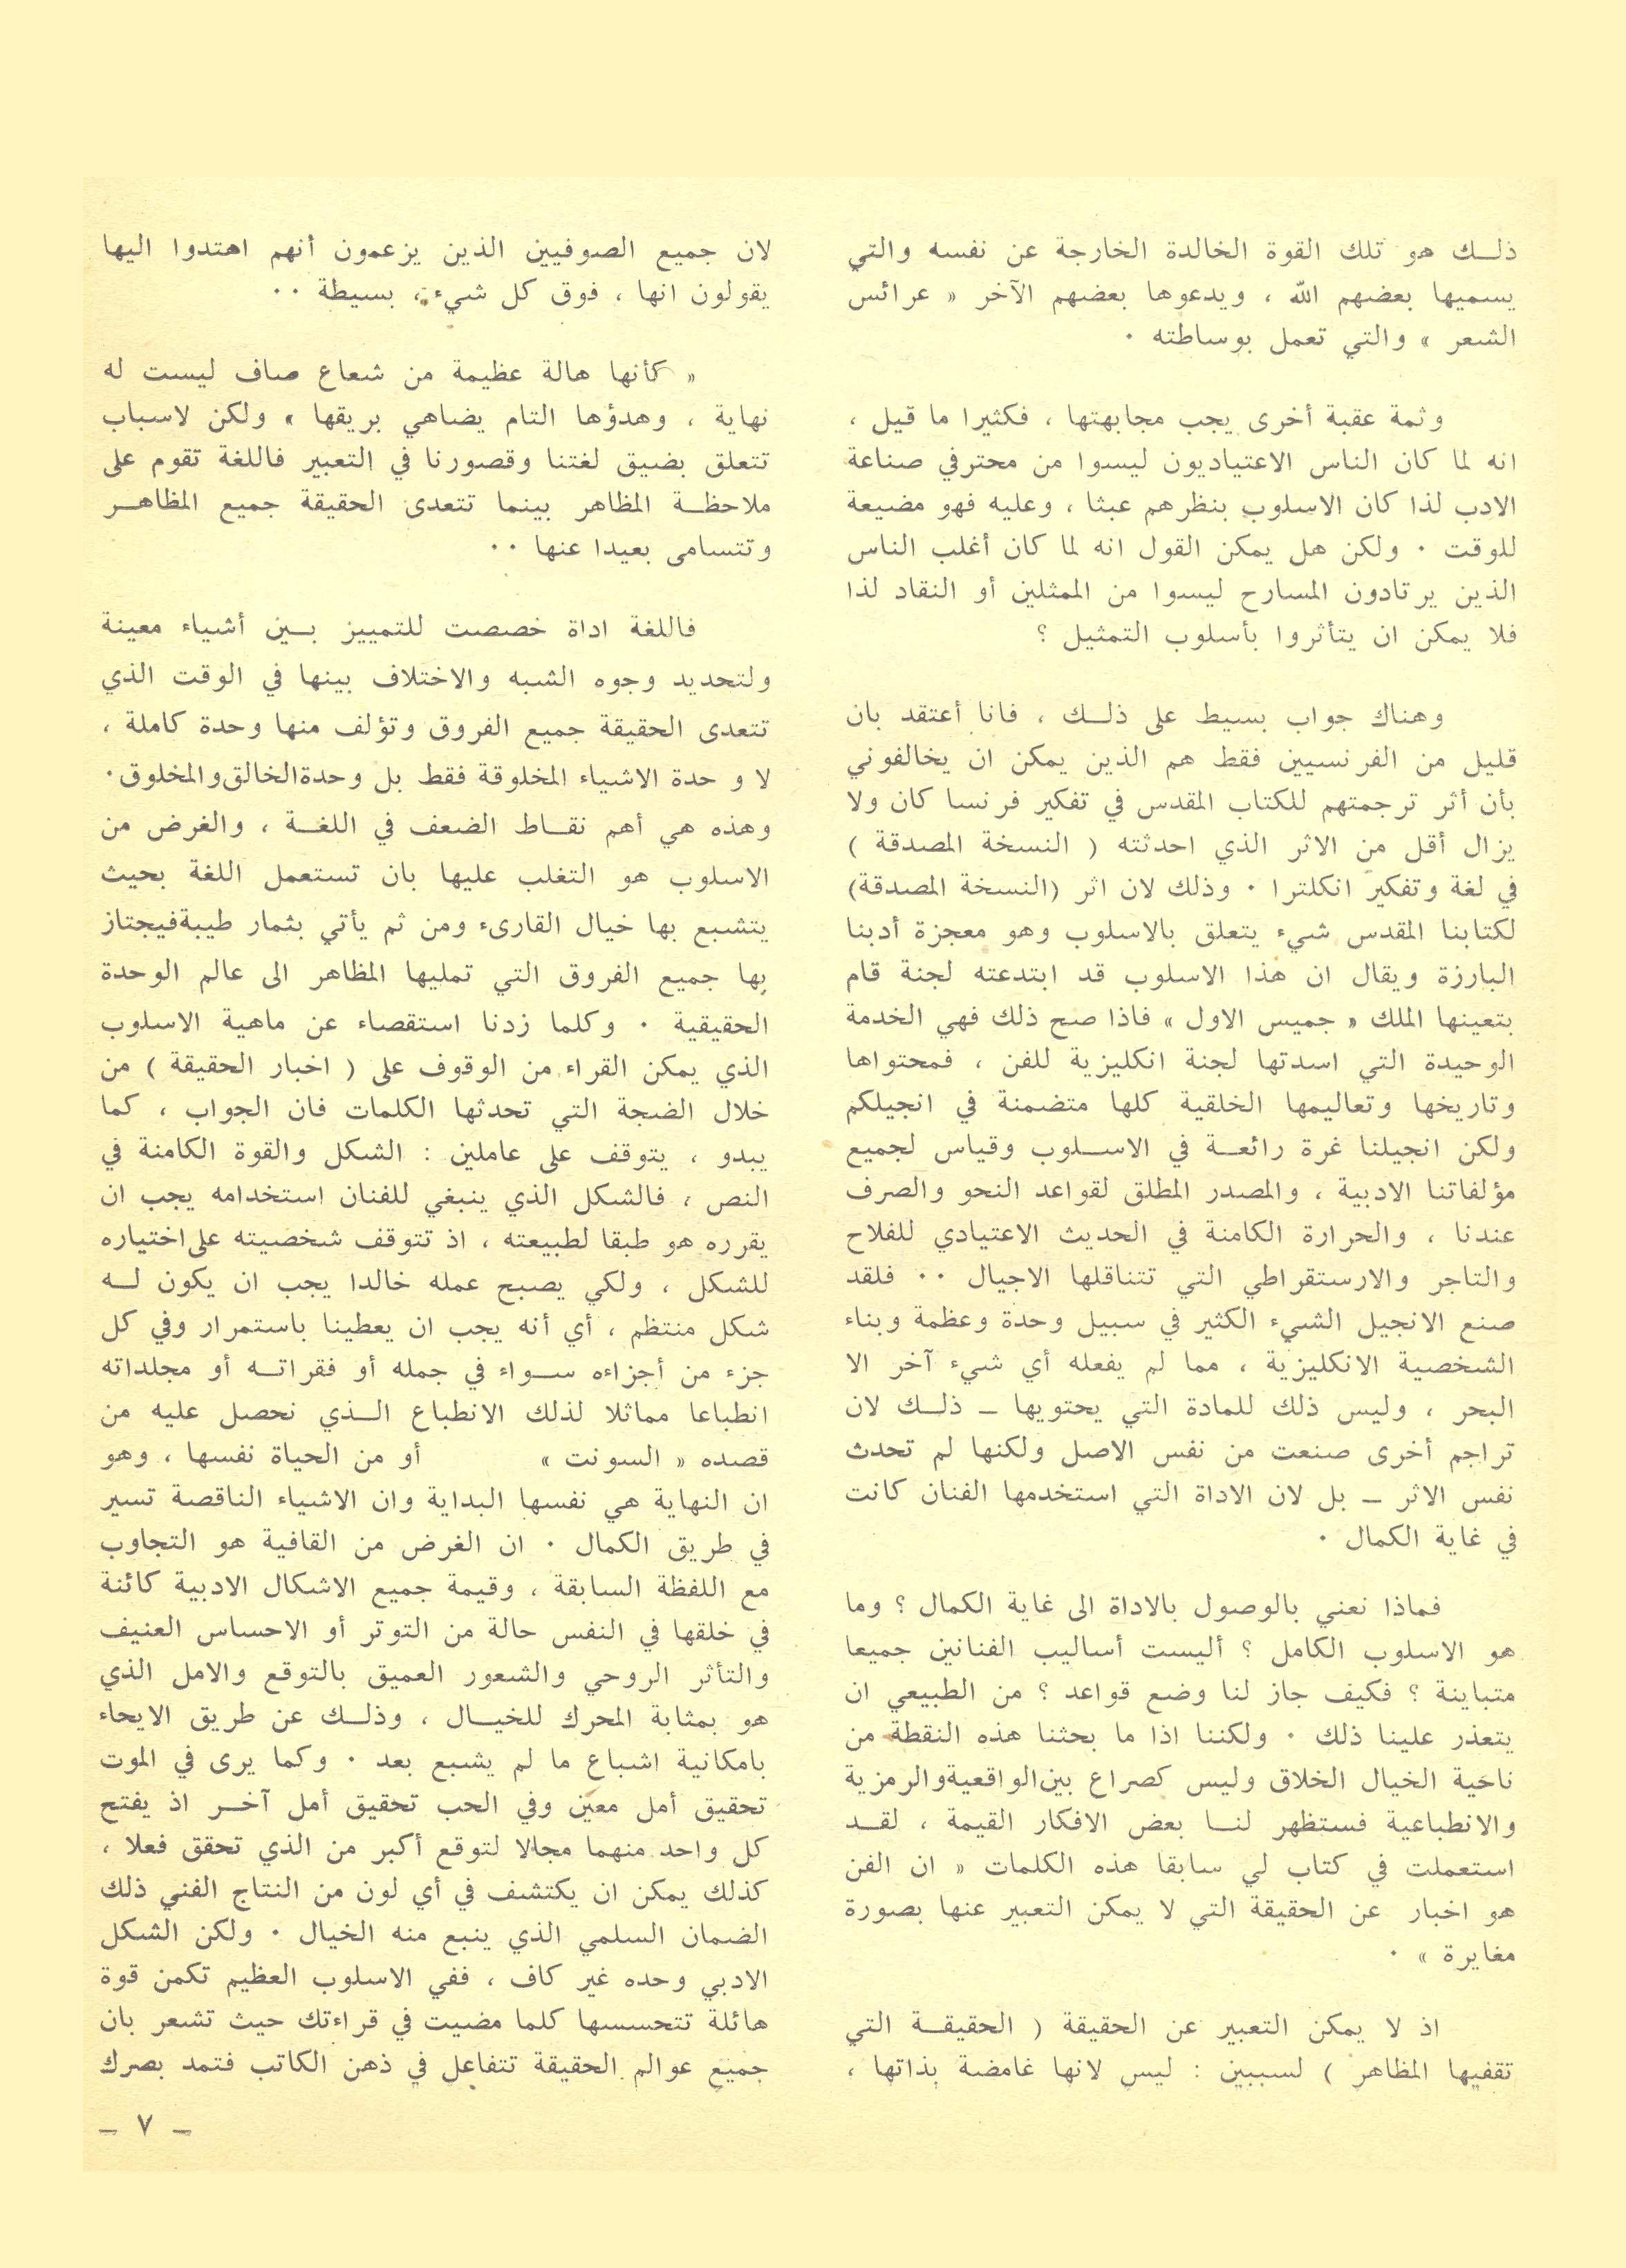 ذلـــك هو تلك القوة الخالدة الخارجة عن نفسه والتي
يسميها بعضهم الله ، ويدعوها بعضهم الآخر « عرائس
الشعر » والتي تعمل بوساطته ·
وثمة عقبة أخرى يجب مجابهتها ، فكثيرا ما قيل ،
انه لما كان الناس الاعتياديون ليسوا من محترفي صناعة
الادب لذا كان الاسلوب بنظرهم عبثا ، وعليه فهو مضيعة
للوقت · ولكن هل يمكن القول انه لما كان أغلب الناس
الذين يرتادون المسارح ليسوا من الممثلين أو النقاد لذا
فلا يمكن ان يتأثروا بأسلوب التمثيل ؟
وهناك جواب بسيط على ذلـــك ، فانا أعتقد بان
قليل من الفرنسيين فقط هم الذين يمكن ان يخالفوني
بأن أثر ترجمتهم للكتاب المقدس في تفكير فرنسا كان ولا
يزال أقل من الاثر الذي احدثته ( النسخة المصدقة )
في لغة وتفكير انكلترا · وذلك لان اثر (النسخة المصدقة)
لكتابنا المقدس شيء يتعلق بالاسلوب وهو معجزة أدبنا
البارزة ويقال ان هذا الاسلوب قد ابتدعته لجنة قام
بتعينها الملك « جميس الاول » فاذا صح ذلك فهي الخدمة
الوحيدة التي اسدتها لجنة انكليزية للفن ، فمحتواها
وتاريخها وتعاليمها الخلقية كلها متضمنة في انجيلكم
ولكن انجيلنا غرة رائعـــة في الاســـلوب وقياس لجميع
مؤلفاتنا الادبية ، والمصدر المطلق لقواعد النحو والصرف
عندنا ، والحرارة الكامنة في الحديث الاعتيادي للفلاح
والتاجر والارستقراطي التي تتناقلها الاجيال ·· فلقد
صنع الانجيل الشيء الكثير في سبيل وحدة وعظمة وبناء
الشخصية الانكليزية ، مما لم يفعله أي شيء آخر الا
البحر ، وليس ذلك للمادة التي يحتويها ــ ذلـــك لان
تراجم أخرى صنعت من نفس الاصل ولكنها لم تحدث
نفس الاثر ــ بل لان الاداة التي استخدمها الفنان كانت
في غاية الكمال ·
فماذا نعني بالوصول بالاداة الى غاية الكمال ؟ وما
هو الاسلوب الكامل ؟ أليست أساليب الفنانين جميعا
متباينة ؟ فكيف جاز لنا وضع قواعد ؟ من الطبيعي ان
يتعذر علينا ذلك · ولكننا اذا ما بحثنا هذه النقطة من
ناحية الخيال الخلاق وليس كصراع بين الواقعية والرمزية
والانطباعية فستظهر لنـــا بعض الافكار القيمة ، لقـــد
استعملت في كتاب لي سابقا هذه الكلمات « ان الفن
هو اخبار عن الحقيقة التي لا يمكن التعبير عنها بصورة
مغايرة » ·
اذ لا يمكن التعبير عن الحقيقة ( الحقيقـــة التي
تقفيها المظاهر ) لسببين : ليس لانها غامضة بذاتها ،
لان جميع الصوفيين الذين يزعمون أنهم اهتدوا اليها
يقولون انها ، فوق كل شيء ، بسيطة ··
« كأنها هالة عظيمة من شعاع صاف ليست له
نهاية ، وهدؤها التام يضاهي بريقها » ولكن لاسباب
تتعلق بضيق لغتنا وقصورنا في التعبير فاللغة تقوم على
ملاحظـــة المظاهر بينما تتعدى الحقيقة جميع المظاهـــر
وتتسامى بعيدا عنها ··
فاللغة اداة خصصت للتمييز بـــين أشياء معينة
ولتحديد وجوه الشبه والاختلاف بينها في الوقت الذي
تتعدى الحقيقة جميع الفروق وتؤلف منها وحدة كاملة ،
لا و حدة الاشياء المخلوقة فقط بل وحدة الخالق والمخلوق ·
وهذه هي أهم نقـــاط الضعف في اللغـــة ، والغرض من
الاسلوب هو التغلب عليها بان تستعمل اللغة بحيث
يتشبع بها خيال القارىء ومن ثم يأتي بثمار طيبة فيجتاز
بها جميع الفروق التي تمليها المظاهر الى عالم الوحدة
الحقيقية · وكلما زدنا استقصاء عن ماهية الاسلوب
الذي يمكن القراء من الوقوف على ( اخبار الحقيقة ) من
خلال الضجة التي تحدثها الكلمات فان الجواب ، كما
يبدو ، يتوقف على عاملين : الشكل والقوة الكامنة في
النص ، فالشكل الذي ينبغي للفنان استخدامه يجب ان
يقرره هو طبقا لطبيعته ، اذ تتوقف شخصيته على اختياره
للشكل ، ولكي يصبح عمله خالدا يجب ان يكون لـــه
شكل منتظم ، أي أنه يجب ان يعطينا باستمرار وفي كل
جزء من أجزاءه ســـواء في جمله أو فقراتـــه أو مجلداته
انطباعا مماثلا لذلك الانطباع الـــذي نحصل عليه من
قصده « السونت » أو من الحياة نفسها ، وهو
ان النهاية هي نفسها البداية وان الاشياء الناقصة تسير
في طريق الكمال · ان الغرض من القافية هو التجاوب
مع اللفظة السابقة ، وقيمة جميع الاشكال الادبية كائنة
في خلقها في النفس حالة من التوتر أو الاحساس العنيف
والتأثر الروحي والشعور العميق بالتوقع والامل الذي
هو بمثابة المحرك للخيـــال ، وذلـــك عن طريق الايحاء
بامكانية اشباع ما لم يشبع بعد · وكما يرى في الموت
تحقيق أمل معين وفي الحب تحقيق أمل آخـــر اذ يفتح
كل واحد منهما مجالا لتوقع أكبر من الذي تحقق فعلا ،
كذلك يمكن ان يكتشف في أي لون من النتاج الفني ذلك
الضمان السلمي الذي ينبع منه الخيال · ولكن الشكل
الادبي وحده غير كاف ، ففي الاسلوب العظيم تكمن قوة
هائلة تتحسسها كلما مضيت في قراءتك حيث تشعر بان
جميع عوالم الحقيقة تتفاعل في ذهن الكاتب فتمد بصرك
ــ ٧ ــ